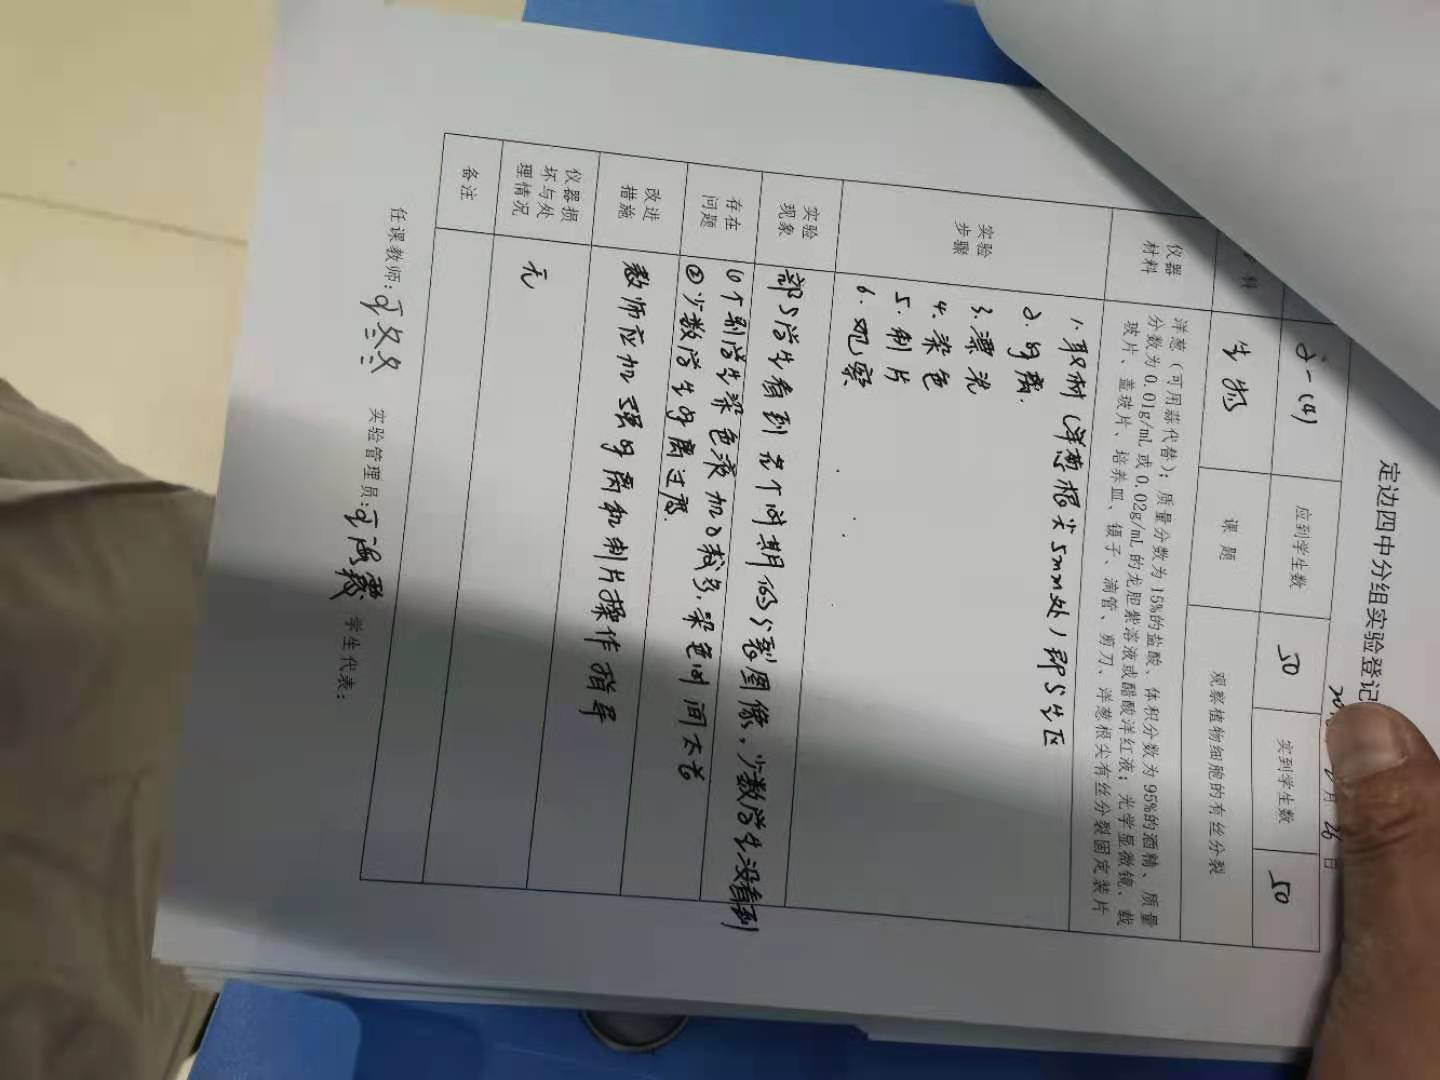 定边四中分组实验登记
月 26 日
2-(4) 应到学生数 50 实到学生数 50
科 生物 课 题 观察植物细胞的有丝分裂
仪器
材料
洋葱（可用蒜代替）；质量分数为15%的盐酸、体积分数为95%的酒精、质量
分数为0.01g/mL或0.02g/mL的龙胆紫溶液或醋酸洋红液；光学显微镜、载
玻片、盖玻片、培养皿、镊子、滴管、剪刀、洋葱根尖有丝分裂固定装片
实验
步骤
1.取材(洋葱根尖5mm处)即分生区
2.解离.
3.漂洗
4.染色
5.制片
6.观察
实验
现象
部分学生看到各个时期的分裂图像,少数学生没看到
存在
问题
①个别学生染色液加的较多,染色时间太长
②少数学生解离过度.
改进
措施
教师应加强解离和制片操作指导
仪器损
坏与处
理情况
无
备注
任课教师: 实验管理员: 学生代表: